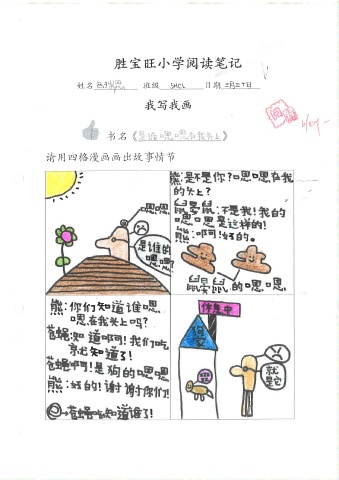 胜宝旺小学阅读笔记
姓名 班级 5HCL 日期 三月三十日
我写我画
书名《是谁嗯嗯在我头上》
请用四格漫画画出故事情节
嗯嗯
是谁的
熊:是不是你?嗯嗯在我
的头上?
鼠鼠:不是我!我的
嗯嗯是这样的!
熊:啊!好的。
鼠鼠的嗯嗯
熊:你们知道谁嗯
嗯在我头上吗?
苍蝇:知道啊!我们吃
就知道了!
苍蝇啊!是狗的嗯嗯
熊:好的!谢谢你们!
苍蝇吃知道谁了!
休息中
狗家
就是它